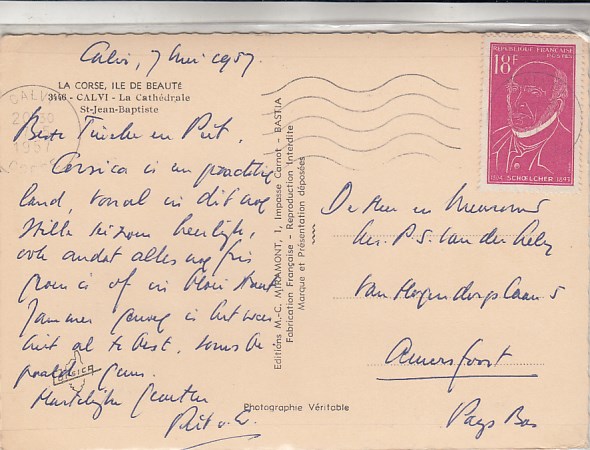 Calvi, 7 Mei 1957
LA CORSE, ILE DE BEAUTÉ
3446 - CALVI - La Cathédrale
St-Jean-Baptiste
CALVI
20 30
1957
CORSE
RÉPUBLIQUE FRANÇAISE
POSTES
18F
1804 SCHŒLCHER 1893
Beste en Piet,
Corsica is een prachtig
land, vooral in dit nog
stille seizoen heerlijk,
ook omdat alles nog fris
groen is of in bloei staat
Jammer genoeg is het weer
niet al te best, soms de
geen.
CORSICA
Hartelijke groeten
Piet
Editions M.-C. MIRAMONT, 1, Impasse Carnot - BASTIA
Fabrication Française - Reproduction Interdite
Marque et Présentation déposées
Photographie Véritable
De Heer en Mevrouw
P.S. van der
van Hogendorplaan 5
Amersfoort
Pays Bas